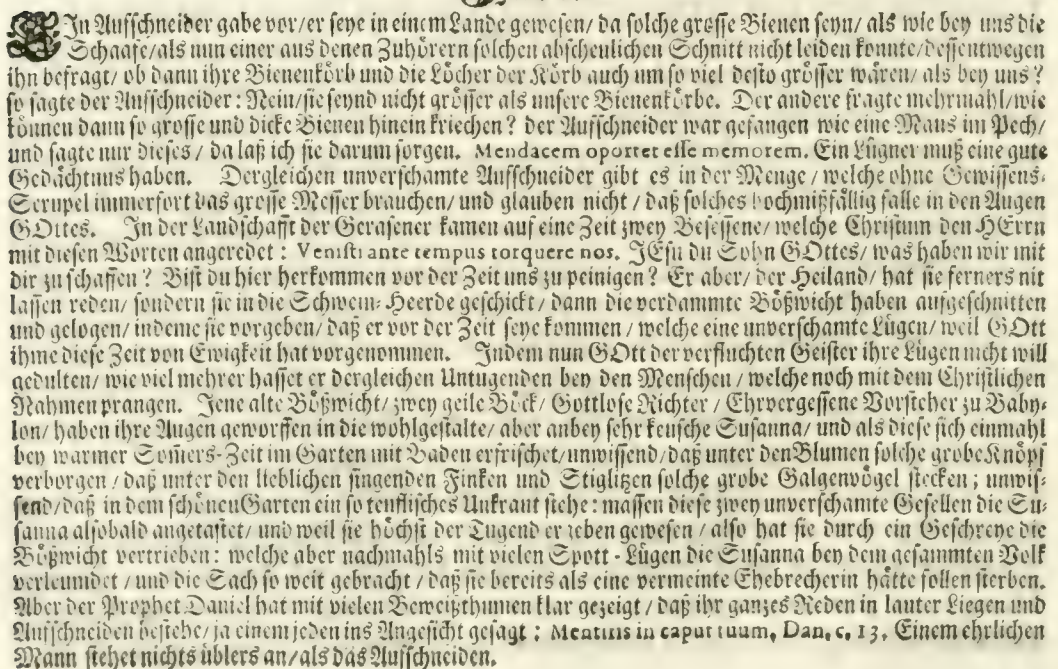 EIn Auffschneider gabe vor/er seye in einem Lande gewesen/ da solche grosse Bienen seyn/ als wie bey uns die
Schaafe/als nun einer aus denen Zuhörern solchen abscheulichen Schnitt nicht leiden konnte/dessentwegen
ihn befragt/ ob dann ihre Bienenkörb und die Löcher der Körb auch um so viel desto grösser wären/ als bey uns?
so sagte der Auffschneider: Nein/sie seynd nicht grösser als unsere Bienenkörbe. Der andere fragte mehrmahl/wie
können dann so grosse und dicke Bienen hinein kriechen? der Auffschneider war gefangen wie eine Maus im Pech/
und sagte nur dieses/ da laß ich sie darum sorgen. Mendacem oportet esse memorem. Ein Lügner muß eine gute
Gedächtnus haben. Dergleichen unverschamte Auffschneider gibt es in der Menge/ welche ohne Gewissens-
Scrupel immerfort das grosse Messer brauchen/ und glauben nicht/ daß solches hochmißfällig falle in den Augen
GOttes. In der Landschafft der Gerasener kamen auf eine Zeit zwey Besessene/ welche Christum den HErrn
mit diesen Worten angeredet: Venisti ante tempus torquere nos. JEsu du Sohn GOttes/ was haben wir mit
dir zu schaffen? Bist du hier herkommen vor der Zeit uns zu peinigen? Er aber/ der Heiland/ hat sie ferners nit
lassen reden/ sondern sie in die Schwein-Heerde geschickt/ dann die verdammte Bößwicht haben aufgeschnitten
und gelogen/ indeme sie vorgeben/ daß er vor der Zeit seye kommen/ welche eine unverschamte Lügen/ weil GOtt
ihme diese Zeit von Ewigkeit hat vorgenommen. Indem nun GOtt der verfluchten Geister ihre Lügen nicht will
gedulten/ wie viel mehrer hasset er dergleichen Untugenden bey den Menschen/ welche noch mit dem Christlichen
Nahmen prangen. Jene alte Bößwicht/ zwey geile Böck/ Gottlose Richter/ Ehrvergessene Vorsteher zu Baby-
lon/ haben ihre Augen geworffen in die wohlgestalte/ aber anbey sehr keusche Susanna/ und als diese sich einmahl
bey warmer Som̃ers-Zeit im Garten mit Baden erfrischet/unwissend/daß unter den Blumen solche grobe Knöpf
verborgen/ daß unter den lieblichen singenden Finken und Stiglizen solche grobe Galgenvögel stecken; unwis-
send/daß in dem schönen Garten ein so teuflisches Unkraut stehe: massen diese zwey unverschamte Gesellen die Su-
sanna alsobald angetastet/ und weil sie höchst der Tugend ergeben gewesen/ also hat sie durch ein Geschreye die
Bößwicht vertrieben: welche aber nachmahls mit vielen Spott-Lügen die Susanna bey dem gesammten Volk
verleumdet/ und die Sach so weit gebracht/ daß sie bereits als eine vermeinte Ehebrecherin hätte sollen sterben.
Aber der Prophet Daniel hat mit vielen Beweißthumen klar gezeigt/ daß ihr ganzes Reden in lauter Liegen und
Auffschneiden bestehe/ ja einem jeden ins Angesicht gesagt: Mentiris in caput tuum, Dan. c. 13. Einem ehrlichen
Mann stehet nichts üblers an/als das Auffschneiden.